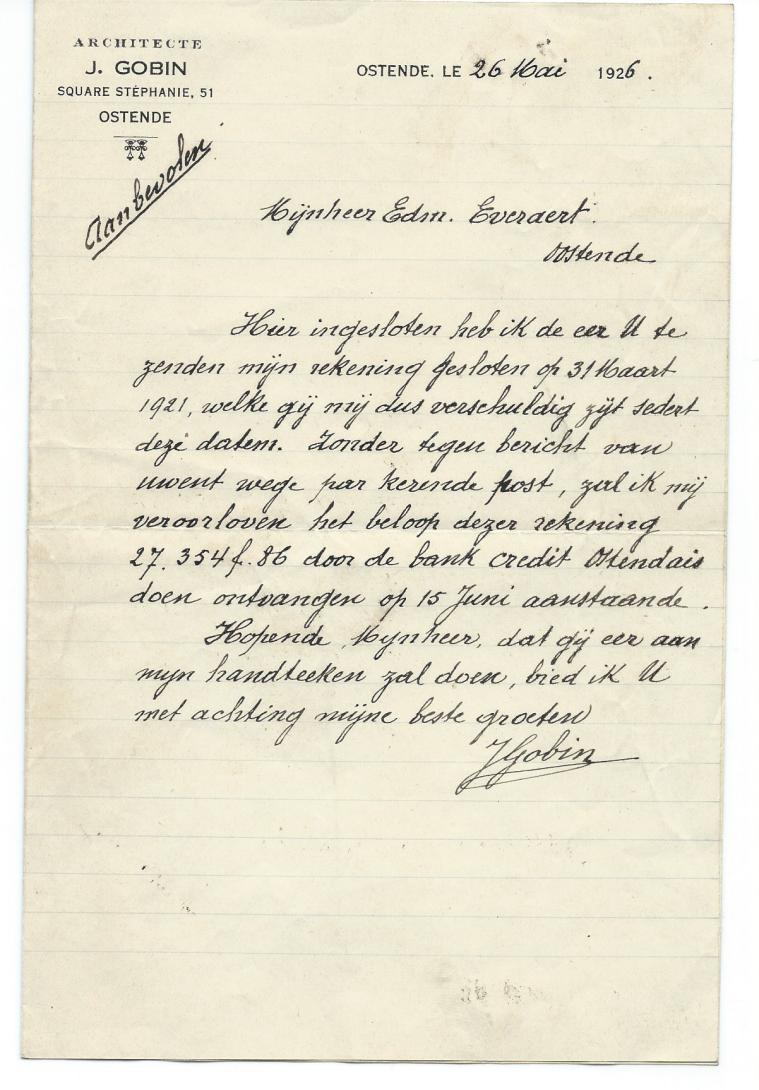 ARCHITECTE
J. GOBIN
SQUARE STÉPHANIE, 51
OSTENDE
OSTENDE, LE 26 Mai 1926.
Aanbevolen
Mijnheer Edm. Everaert.
Oostende
Hier ingesloten heb ik de eer U te
zenden mijn rekening gesloten op 31 Maart
1921, welke gij mij dus verschuldig zijt sedert
deze datem. Zonder tegen bericht van
uwent wege par kerende post, zal ik mij
veroorloven het beloop dezer rekening
27.354 f. 86 door de bank credit Ostendais
doen ontvangen op 15 Juni aanstaande.
Hopende, Mynheer, dat gij eer aan
mijn handteeken zal doen, bied ik U
met achting mijne beste groeten
JGobin